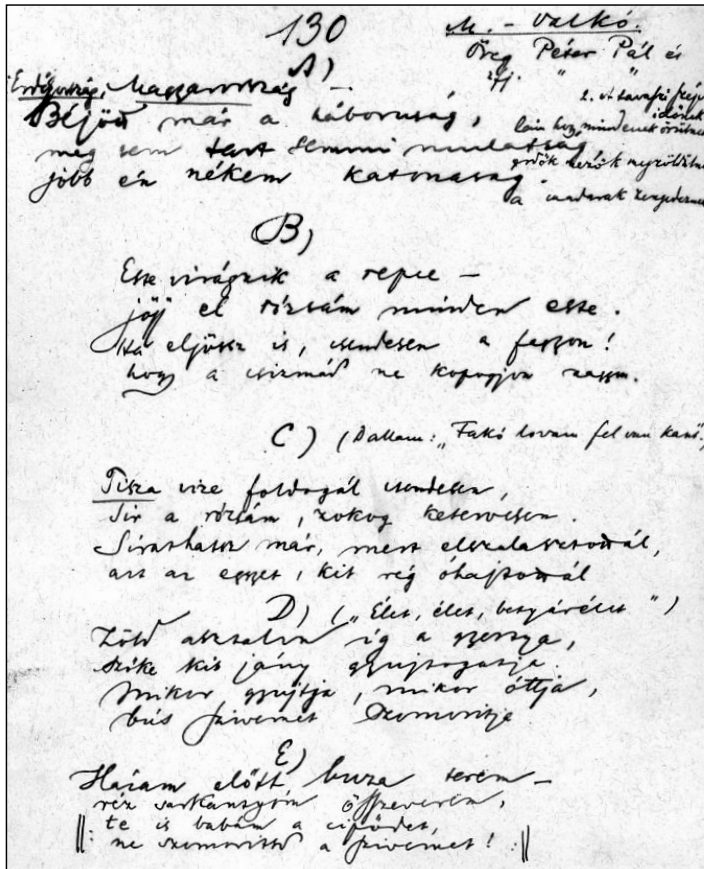 130
M. - Valkó.
Öreg Péter Pál és
ifj. " "
A)
Erdőország, Magyarország —
Béjöd már a háboruság,
még sem tart semmi mulatság,
jobb én nékem katonaság.
2. A tavaszi szép időnek
mindenek örülnek
erdők mezők megzöldülnek
a madarak zengedeznek
B)
Este virágzik a repce —
jöjj el rózsám minden este.
Ha eljössz is, csendesen a faggyon!
hogy a csizmád ne kopogjon naggyon.
C) (Dallam: „Fakó lovam fel van kant."
Tisza vize foldogál csendesen,
Sir a rózsám, zokog keservesen.
Sirathatsz már, mert elszalasztottál,
azt az egyet, kit rég óhajtottál
D) („Élet, élet, betyárélet")
Zöld asztalon ég a gyertya,
szőke kis jány gyujtogatja.
Mikor gyujtja, mikor óttja,
bús szivemet szomoritja.
E)
Házam előtt buza terem —
réz sarkantyúm összeverem,
||: te is babám a cipődet,
ne szomoritsd a szivemet! :||